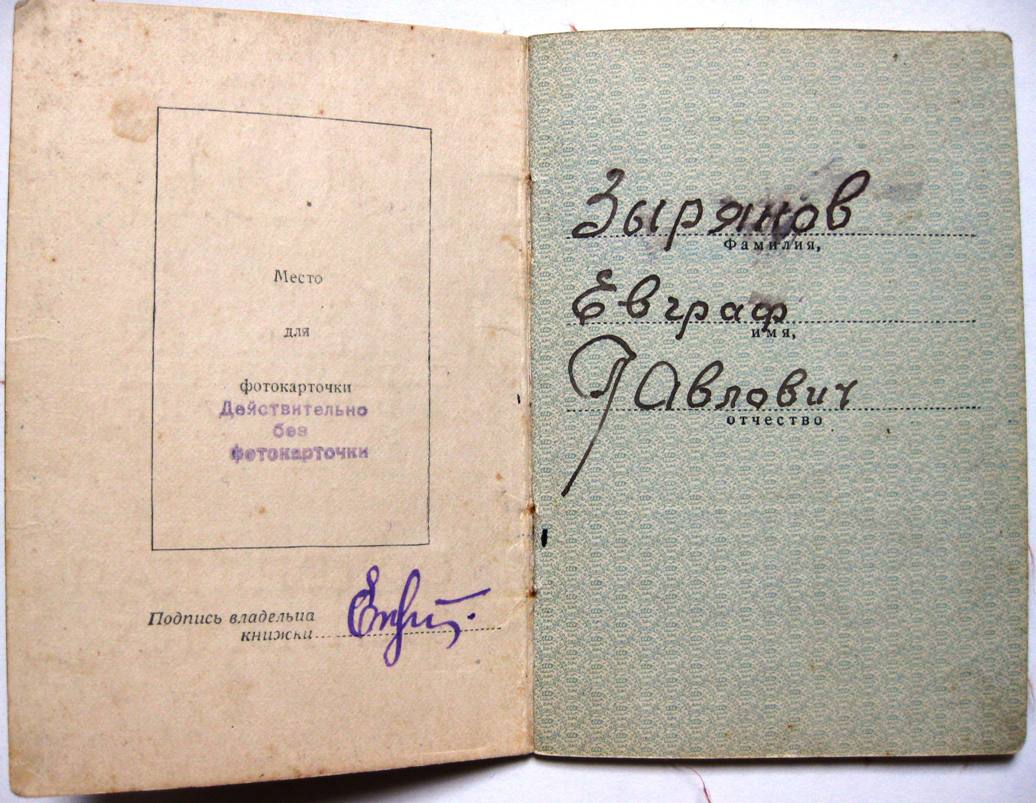 Место
для
фотокарточки
Действительно
без
фотокарточки
Подпись владельца
книжки
Зырянов
Фамилия,
Евграф
имя,
Павлович
отчество